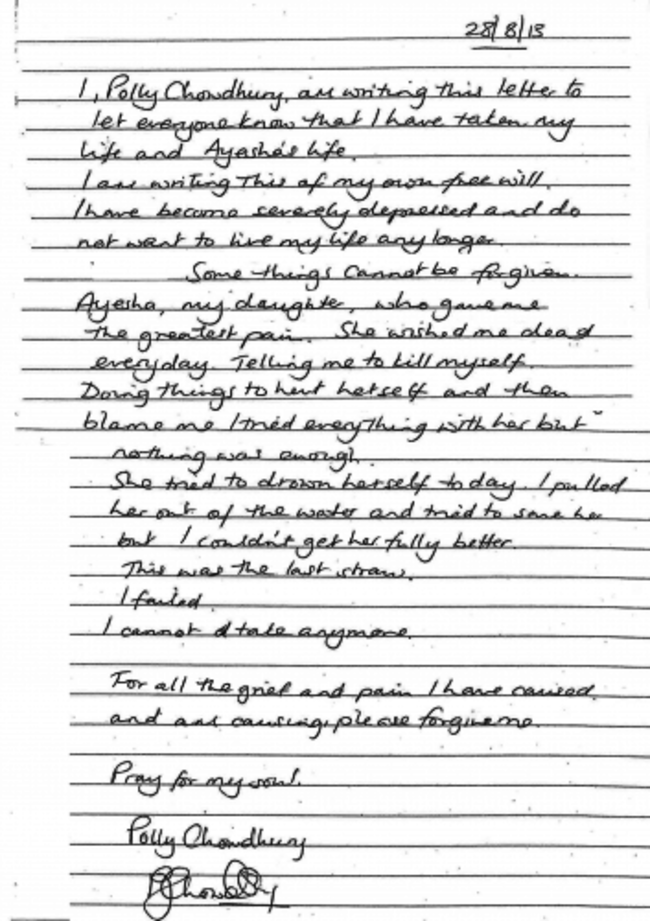 28/8/13
I, Polly Chowdhury, am writing this letter to
let everyone know that I have taken my
life and Ayasha's life.
I am writing this of my own free will.
I have become severely depressed and do
not want to live my life any longer.
Some things cannot be forgiven.
Ayesha, my daughter, who gave me
the greatest pain. She wished me dead
everyday. Telling me to kill myself.
Doing things to hurt herself and then
blame me I tried everything with her but
nothing was enough.
She tried to drown herself today. I pulled
her out of the water and tried to save her
but I couldn't get her fully better.
This was the last straw.
I failed.
I cannot take anymore.
For all the grief and pain I have caused
and am causing, please forgive me.
Pray for my soul.
Polly Chowdhury
PChowdhury